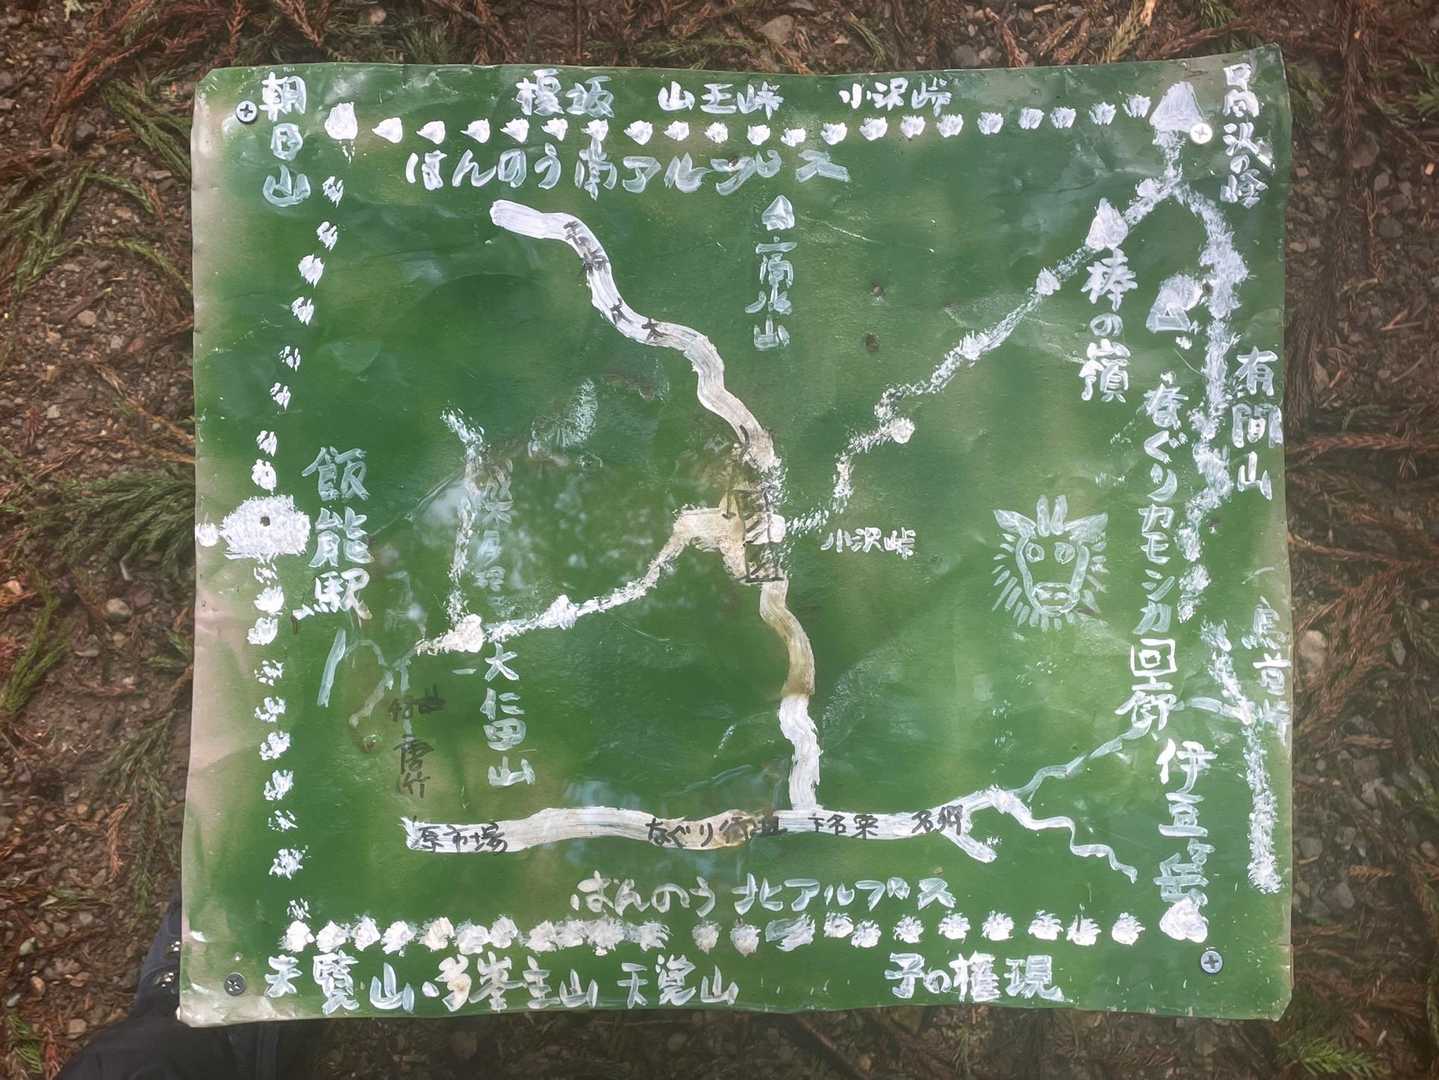 朝日山
榎坂 山王峠 小沢峠
日向沢の峰
はんのう南アルプス
高水山
棒の嶺
有間山
なぐりカモシカ回廊
飯能駅
小沢峠
大仁田山
唐竹
伊豆ヶ岳
原市場
なぐり街道
下名栗
名郷
はんのう北アルプス
天覧山・多峯主山 天覚山
子の権現